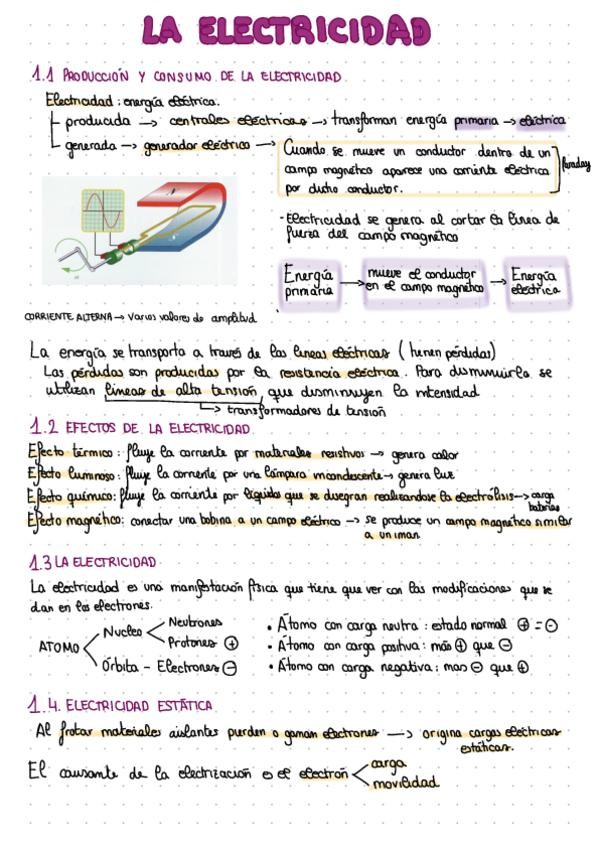 LA ELECTRICIDAD
1.1 PRODUCCIÓN Y CONSUMO DE LA ELECTRICIDAD
Electricidad: energía eléctrica.
producida → centrales eléctricas → transforman energía primaria → eléctrica
generada → generador eléctrico → Cuando se mueve un conductor dentro de un
campo magnético aparece una corriente eléctrica
por dicho conductor.
Faraday
- Electricidad se genera al cortar la línea de
fuerza del campo magnético
Energía primaria → mueve el conductor en el campo magnético → Energía eléctrica
CORRIENTE ALTERNA → Varios valores de amplitud
La energía se transporta a través de las líneas eléctricas (tienen pérdidas)
Las pérdidas son producidas por la resistencia eléctrica. Para disminuirla se
utilizan líneas de alta tensión, que disminuyen la intensidad
→ transformadores de tensión
1.2 EFECTOS DE LA ELECTRICIDAD
Efecto térmico: fluye la corriente por materiales resistivos → genera calor
Efecto luminoso: fluye la corriente por una lámpara incandescente → genera luz
Efecto químico: fluye la corriente por líquidos que se disegran realizandose la electrólisis → carga
baterías
Efecto magnético: conectar una bobina a un campo eléctrico → se produce un campo magnético similar
a un iman
1.3 LA ELECTRICIDAD
La electricidad es una manifestación física que tiene que ver con las modificaciones que se
dan en los electrones.
ATOMO
Nucleo
Neutrones
Protones +
Órbita - Electrones -
• Átomo con carga neutra: estado normal + = -
• Átomo con carga positiva: más + que -
• Átomo con carga negativa: mas - que +
1.4. ELECTRICIDAD ESTÁTICA
Al frotar materiales aislantes pierden o ganan electrones → origina cargas eléctricas
estáticas.
El causante de la electrización es el electrón
carga
movilidad